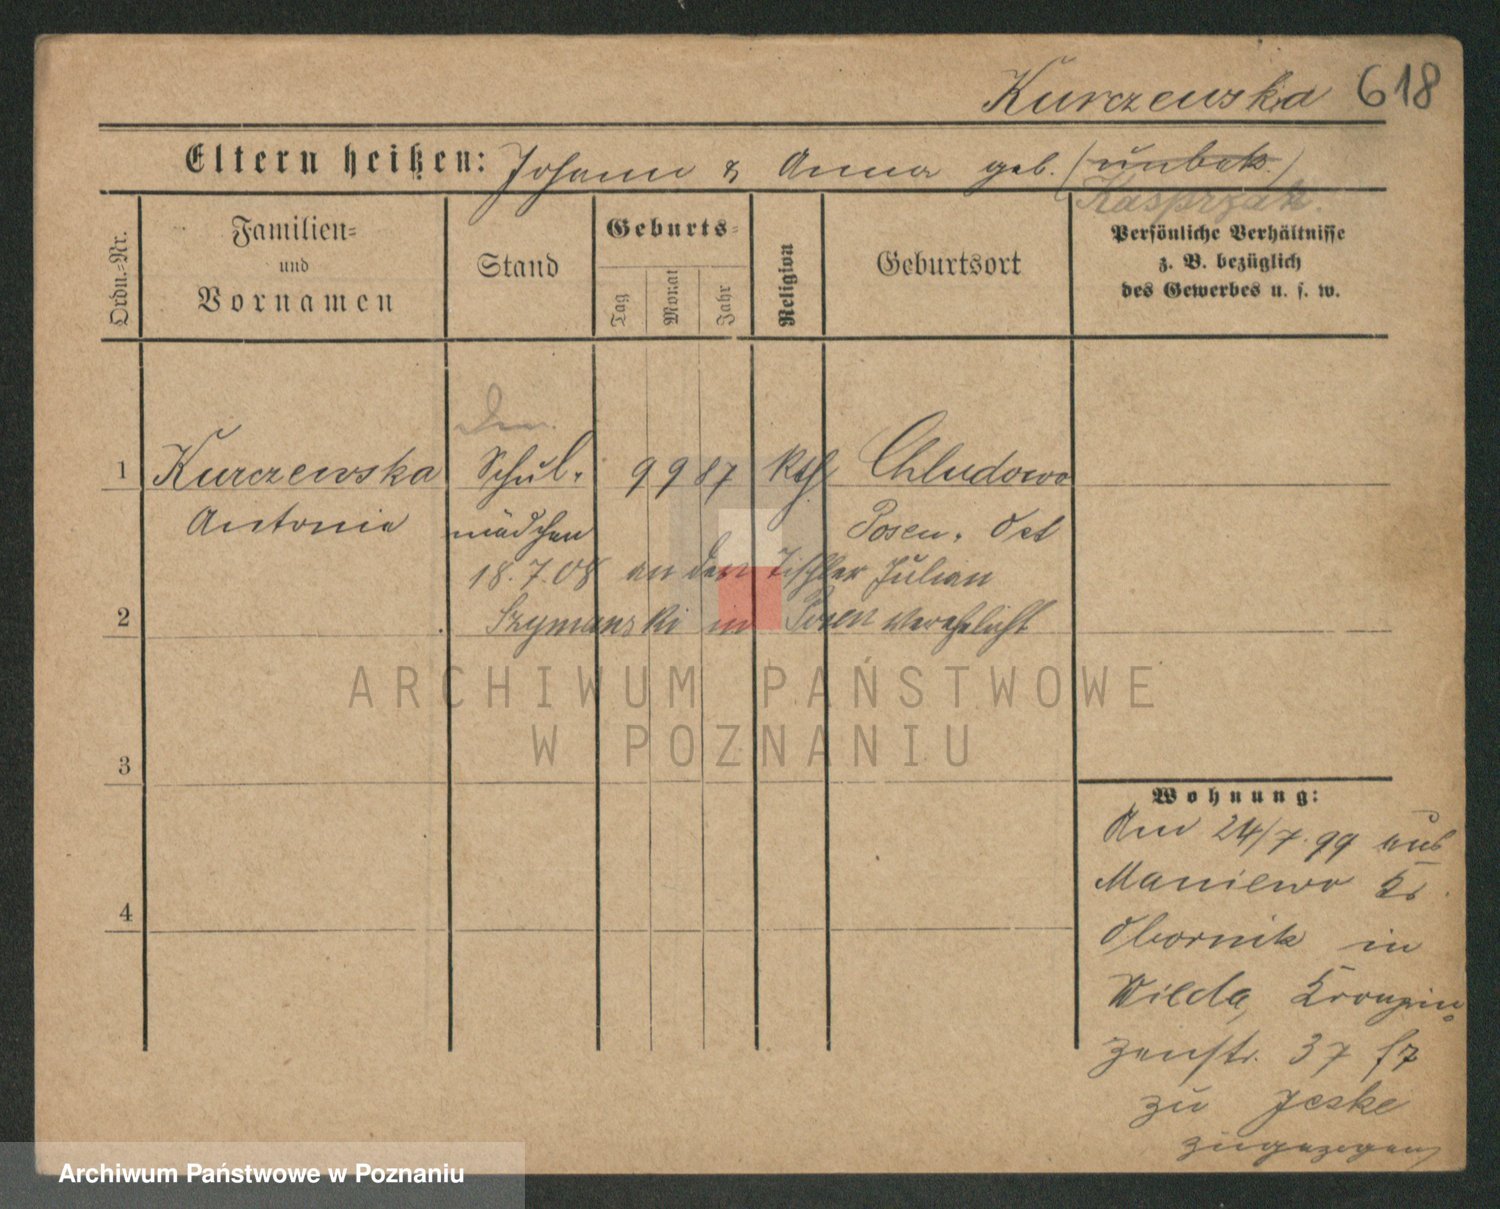 Kurczewska 618
Eltern heißen: Johann & Anna geb. (unbek.)
Kasprzak.
Ordn.-Nr.
Familien-
und
Vornamen
Stand
Geburts-
Tag
Monat
Jahr
Religion
Geburtsort
Persönliche Verhältnisse
z. B. bezüglich
des Gewerbes u. s. w.
1 Kurczewska Schul- 9 9 87 kath Chludowo
Antonie mädchen Posen. Ost
18.7.08 an den Tischler Julian
2 Szymanski in Posen verehelicht
ARCHIWUM PAŃSTWOWE
W POZNANIU
3
4
Wohnung:
Am 24/7.99 aus
Maniewo Kr.
Obornik in
Wilda, Kronprin-
zenstr. 37
zu Jeske
zugezogen
Archiwum Państwowe w Poznaniu